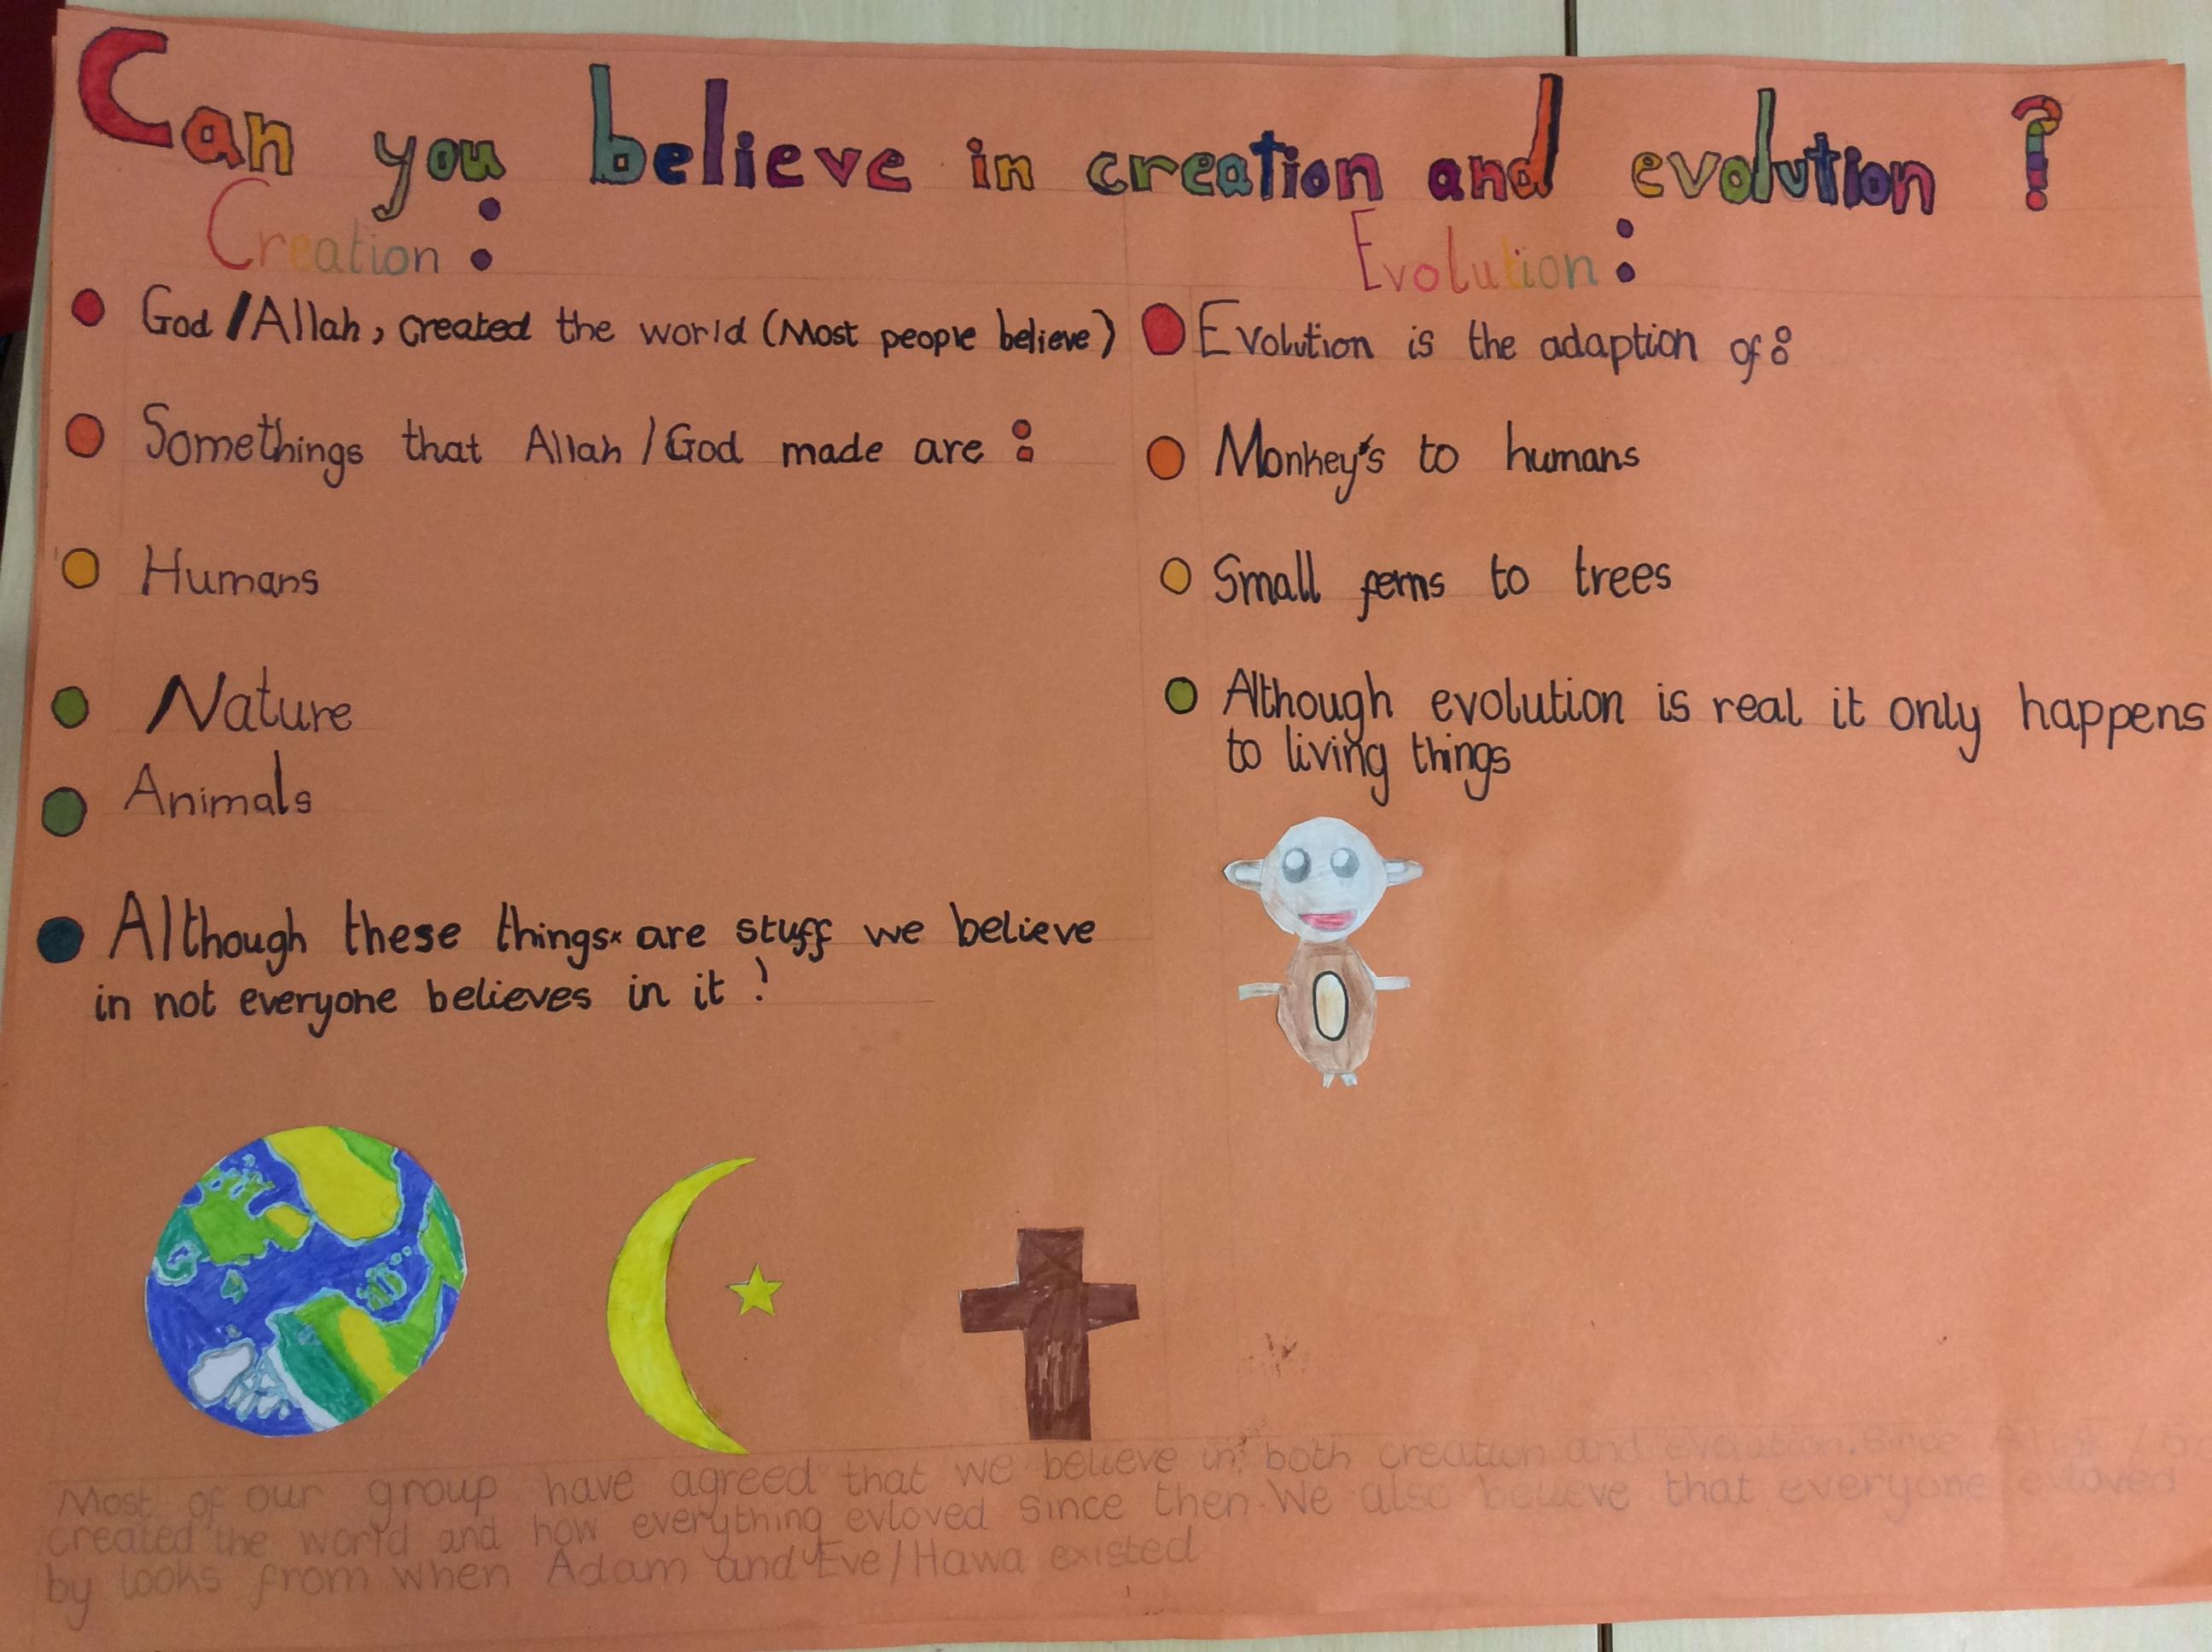 Can you believe in creation and evolution ?
Creation :
God / Allah, created the world (Most people believe)
Somethings that Allah / God made are :
Humans
Nature
Animals
Although these things are stuff we believe
in not everyone believes in it !
Evolution :
Evolution is the adaption of :
Monkey's to humans
Small ferns to trees
Although evolution is real it only happens
to living things
Most of our group have agreed that we believe in both creation and evolution. Since
created the world and how everything evloved since then. We also believe that everyone evloved
by looks from when Adam and Eve / Hawa existed